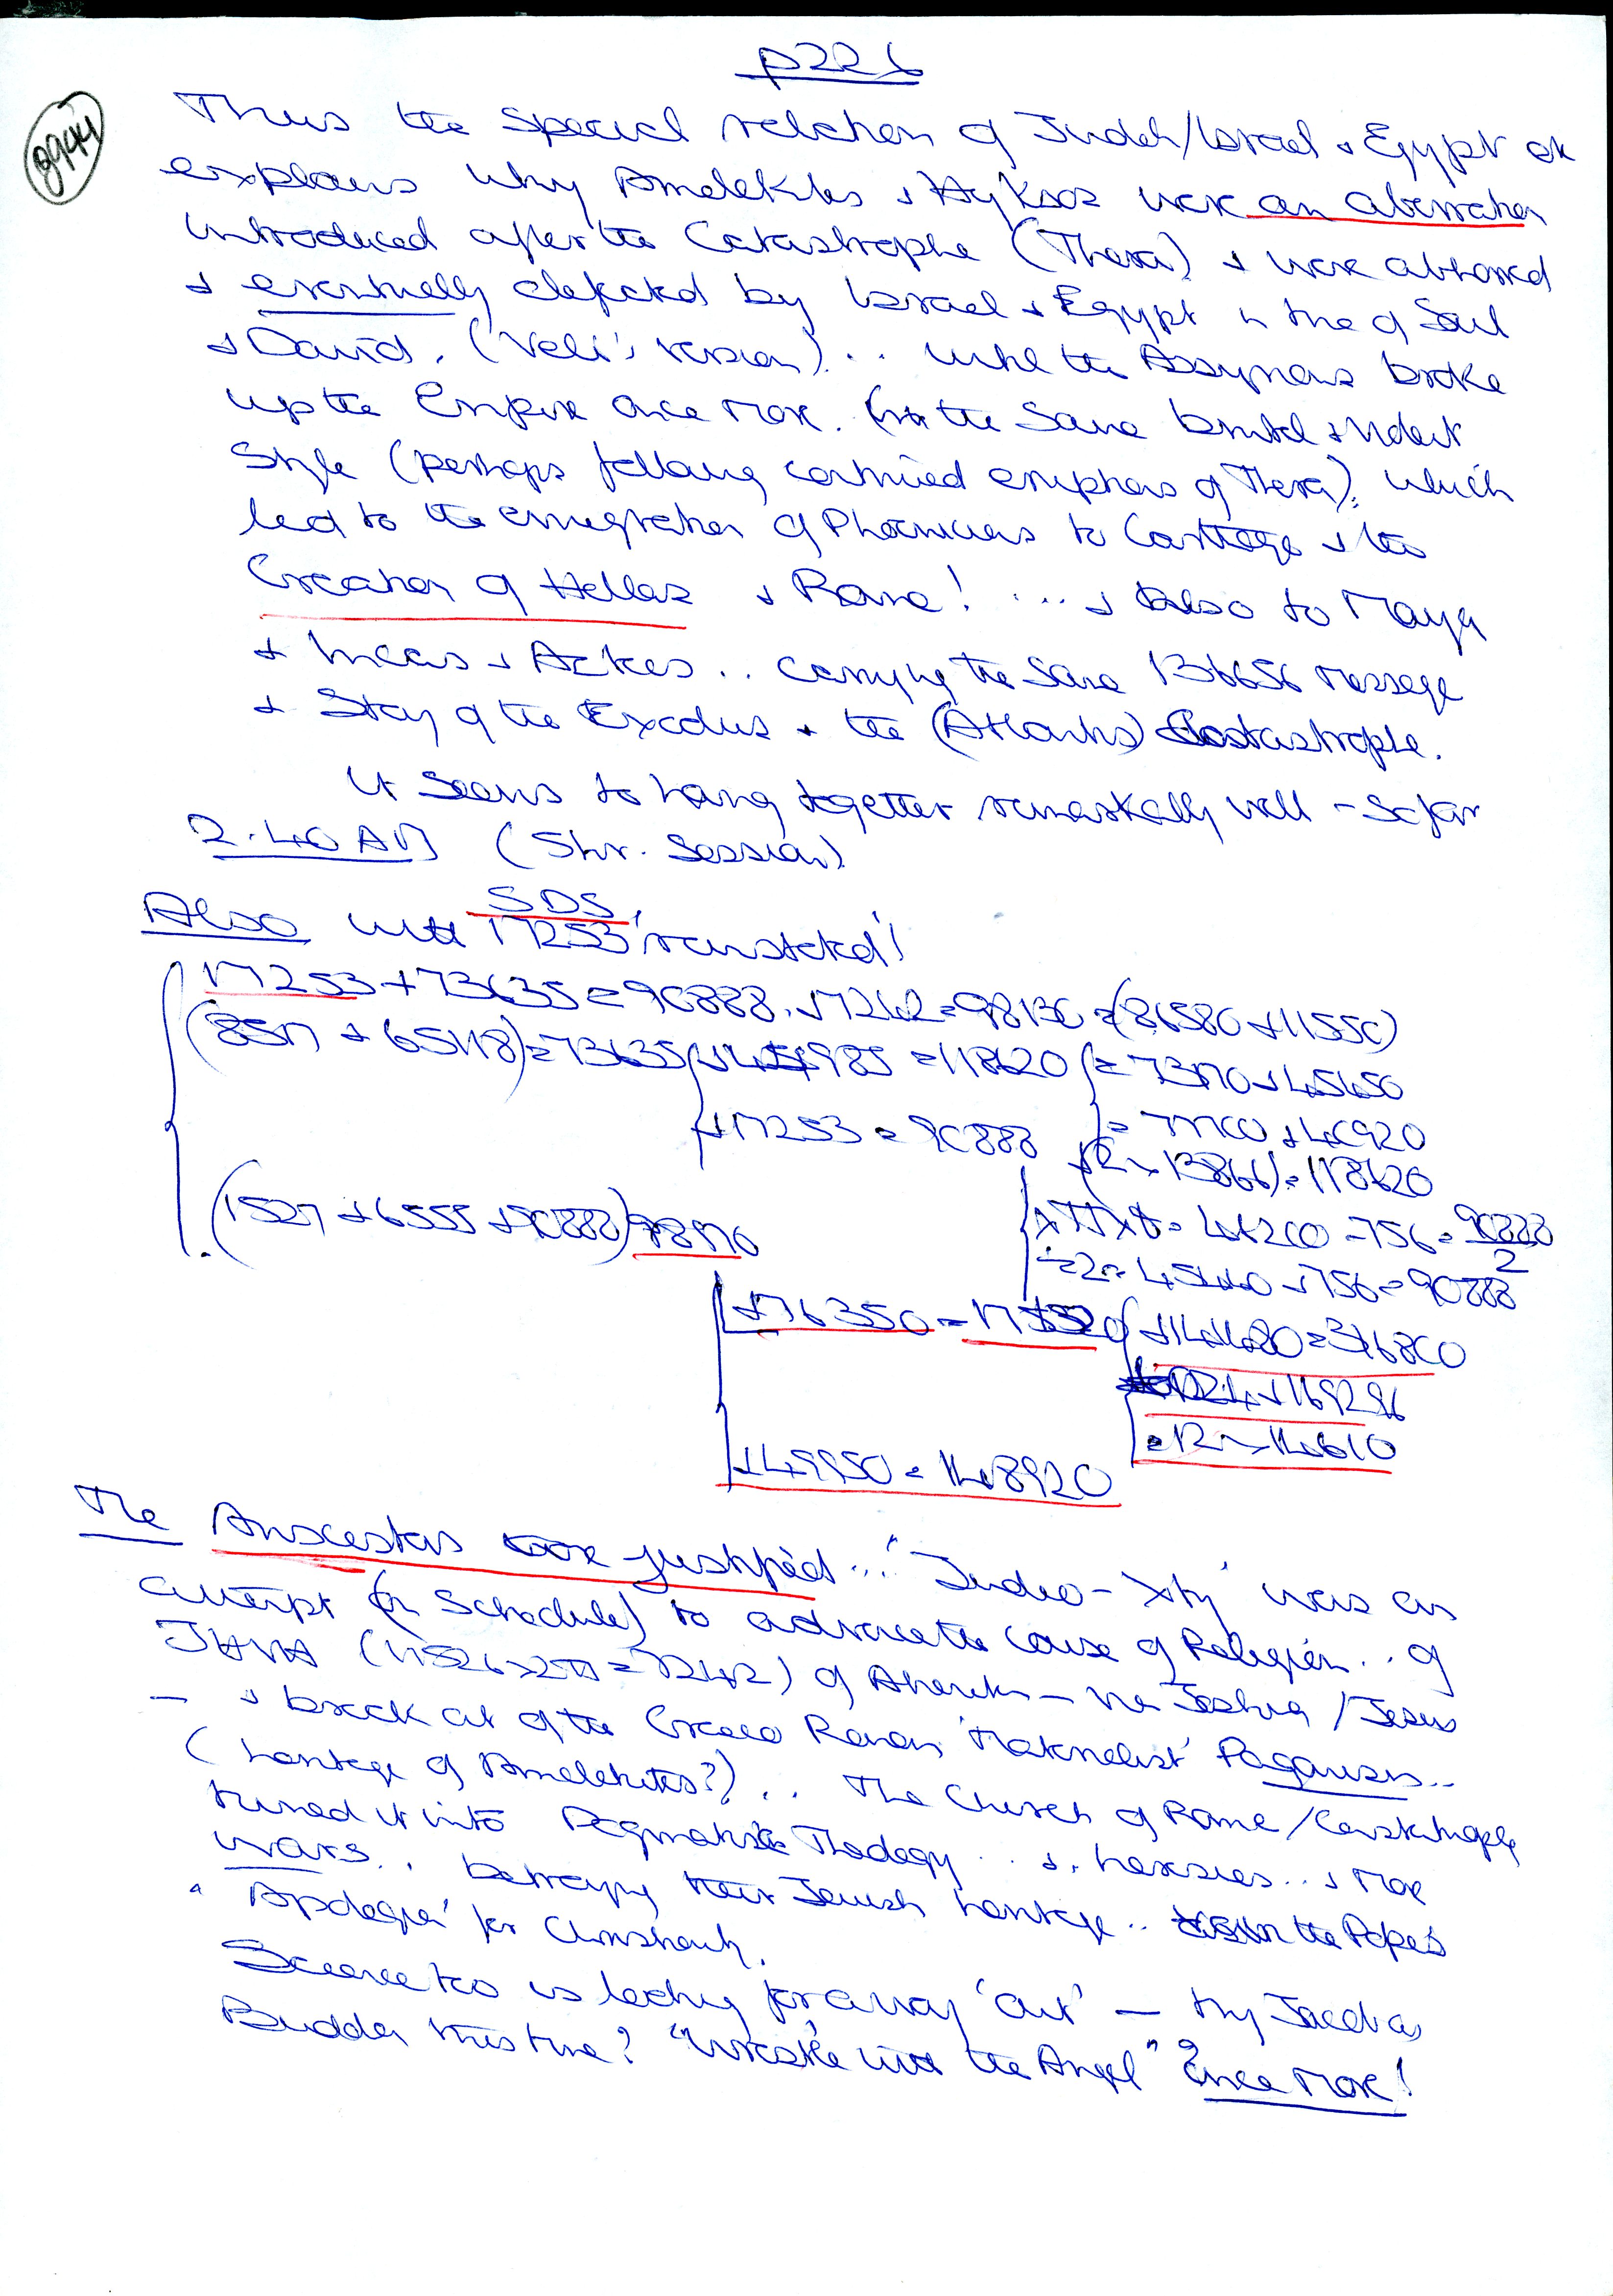 p226
8944
Thus the Special relation of Judah/Israel + Egypt etc
explains why Amalekites + Hyksos were an aberration
introduced after the Catastrophe (Thera) + were abhorred
+ eventually defeated by Israel + Egypt in time of Saul
+ David. (Veli's version) .. until the Assyrians broke
up the Empire once more. (in the same brutal + violent
style (perhaps following continued eruptions of Thera), which
led to the emigration of Phoenicians to Carthage + the
Creation of Hellas + Rome! ... + also to Maya
+ Incas + Aztecs .. carrying the same 136656 message
+ Story of the Exodus + the (Atlantis) Catastrophe.
It seems to hang together remarkably well - so far
2.40 AM (5hr. Session)
SDS
Also with 17253 'reinstated'!
17253 + 73635 = 90888. +7242 = 98130 = (86580 + 11550)
(8517 + 65118) = 73635 + 44985 = 118620 = 73170 + 45450
+17253 = 90888 = 77700 + 40920
13866) = 118620
= 46200 - 756 = 90888
2
÷ 2 = 45440 + 756 = 90888
(1527 + 6555 + 90888) 98970
+76350 = 175320 +141480 = 316800
+ 169296
= 12 > 14610
+49950 = 148920
The Anscestors were justified ... "Judeo-Xty' was an
attempt (on Schedule) to advance the cause of Religion .. of
JHVH (11526 > 2π = 7242) of Akhenaten - via Joshua / Jesus
- + break out of the Graeco Roman 'Materialist' Paganism ..
(heritage of Amalekites?) .. The Church of Rome / Constantinople
turned it into Dogmatic Theology ... + heresies .. + more
wars .. betraying their Jewish heritage .. the Pope's
'Apologia' for Christianity.
Science too is looking for a way 'out' - try Jacob's
Buddha this time? "Wrestle with the Angel" Once More!